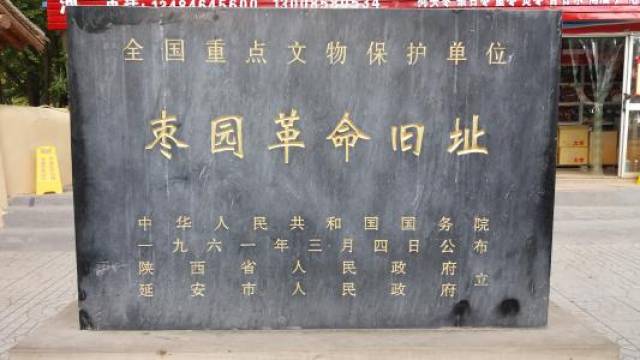 全国重点文物保护单位
枣园革命旧址
中华人民共和国国务院
一九六一年三月四日公布
陕西省人民政府
延安市人民政府 立